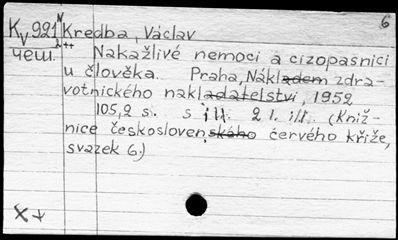 6
K V 921 N Kredba, Václav
2
чеш. ++ Nakažlivé nemoci a cizopasnici
u člověka. Praha, Nákladem zdra-
votnického nakladatelstvi, 1952
105,2 s. s ill. 21. ill. (Kniž-
nice československého červého kříže,
svazek 6.)
X+